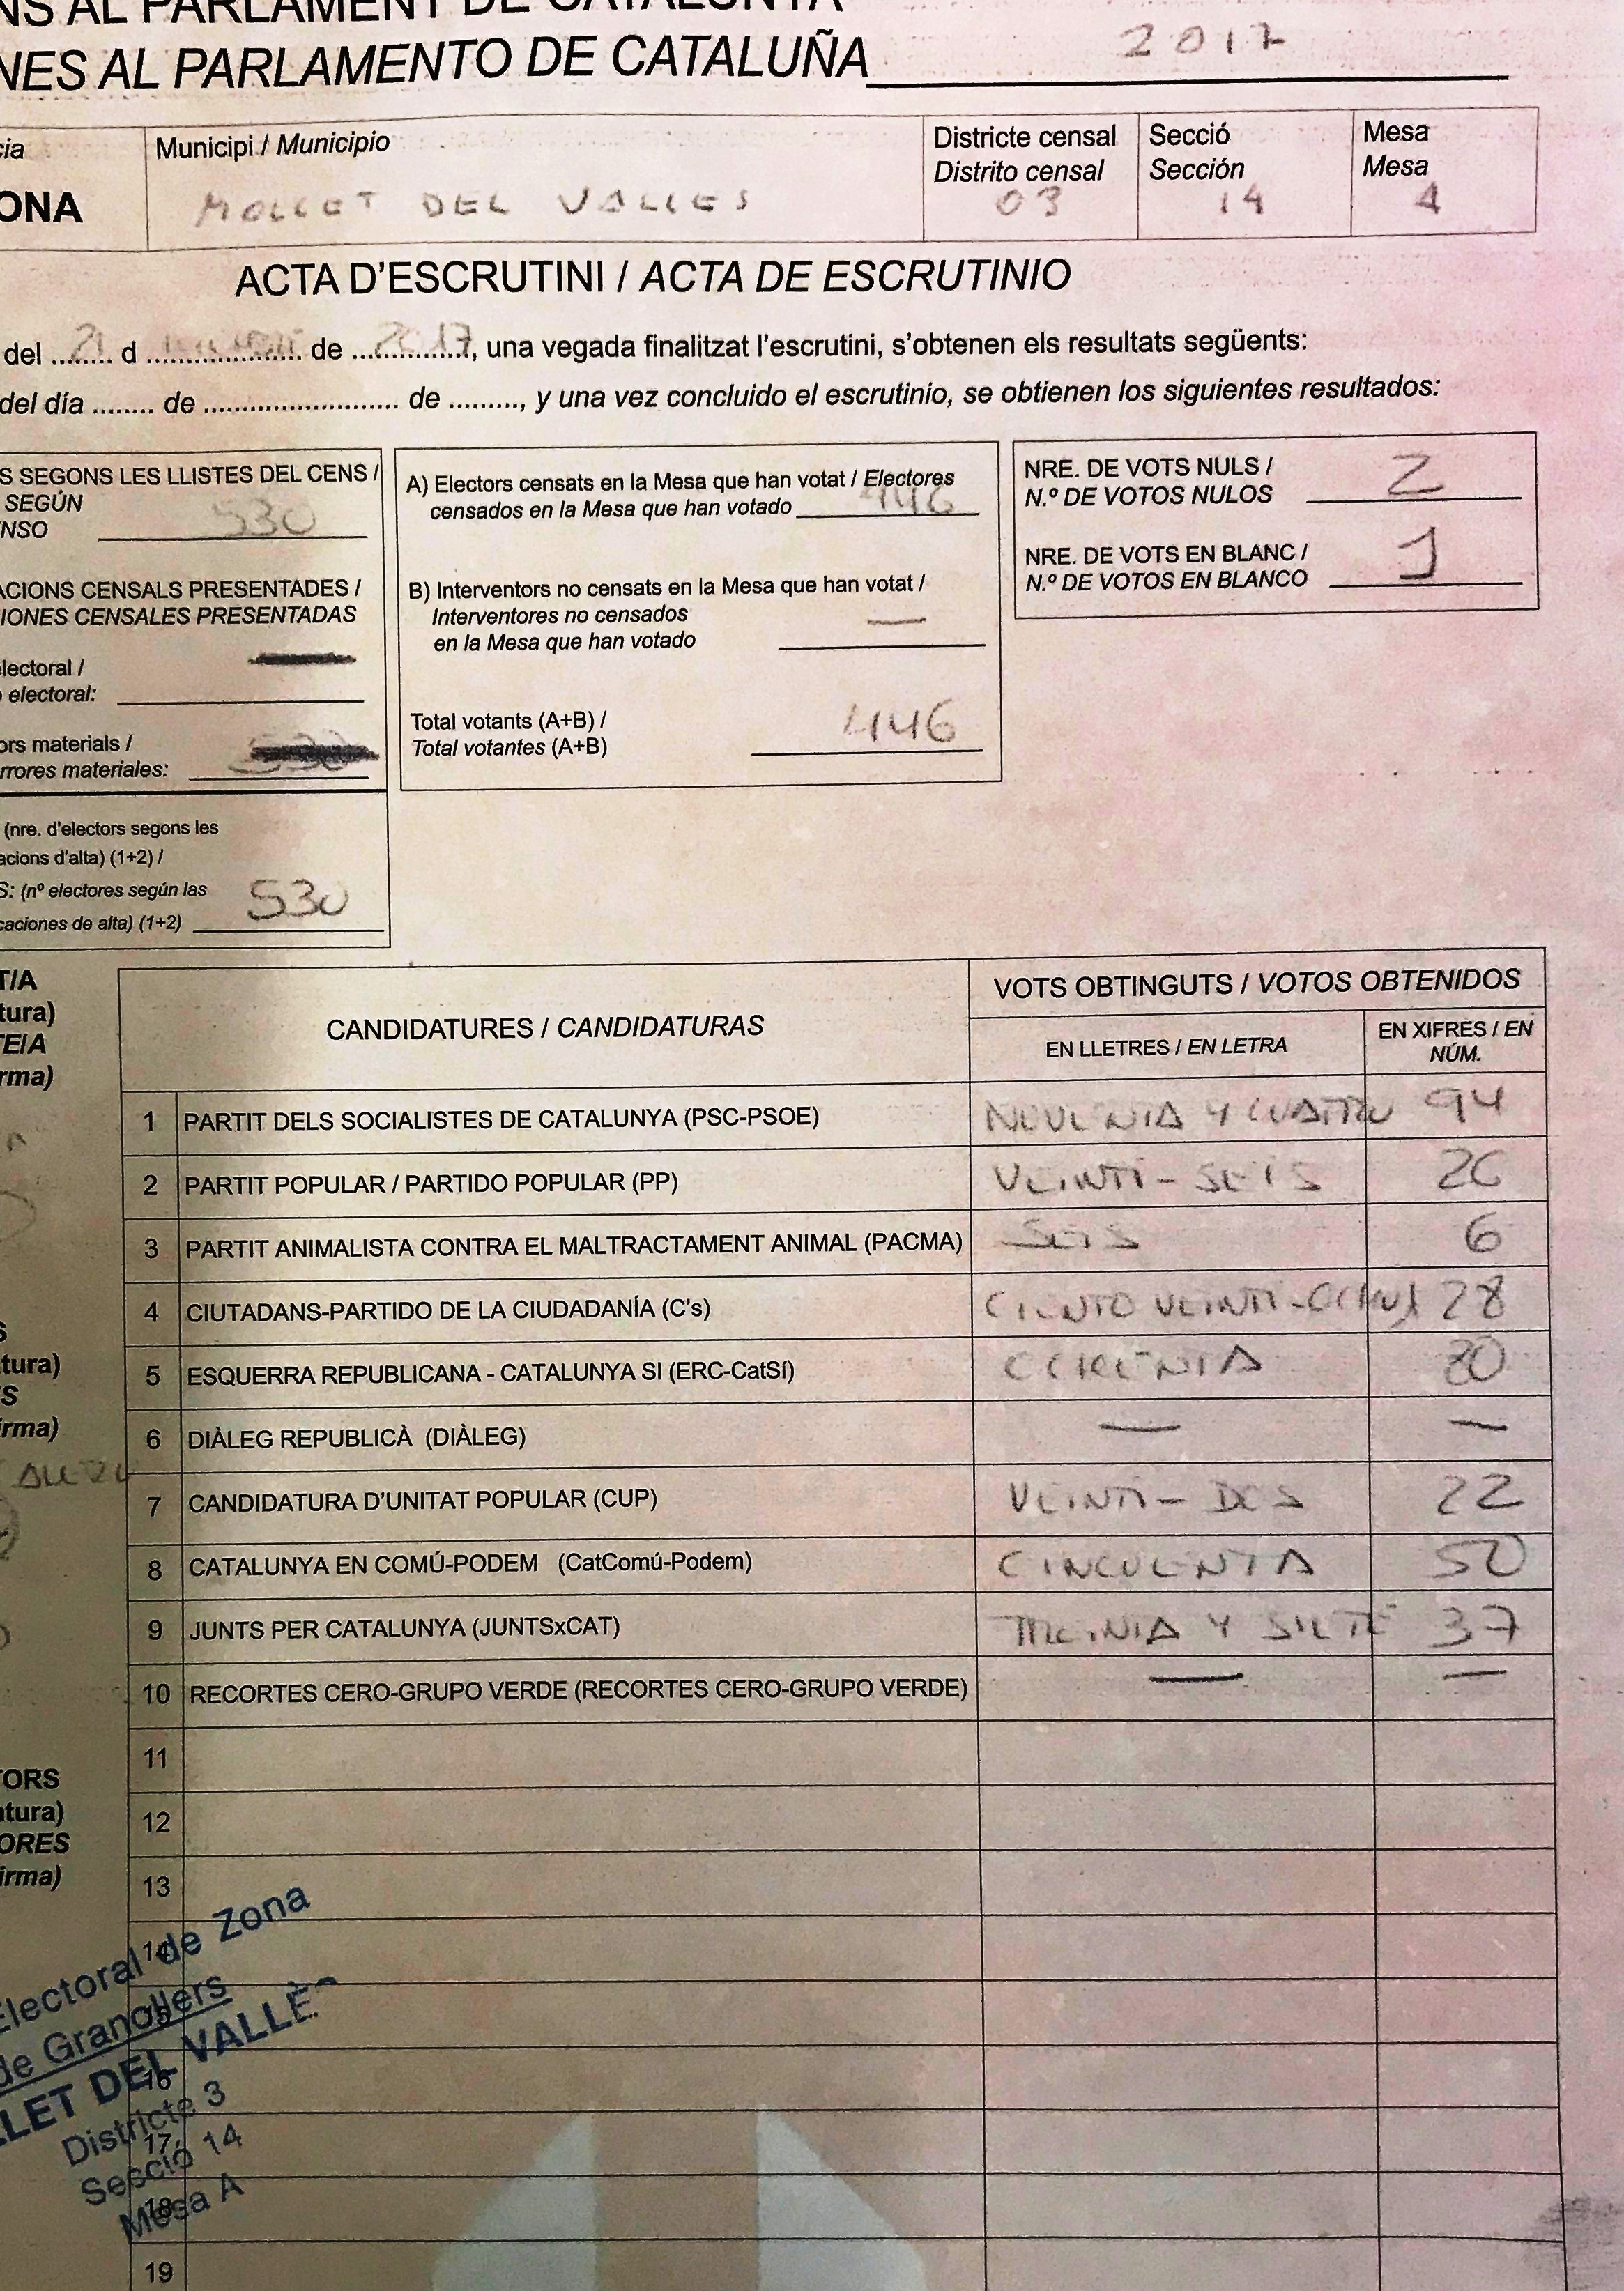 NS AL PARLAMENT DE CATALUNYA
NES AL PARLAMENTO DE CATALUÑA 2017
cia
ONA
Municipi / Municipio
MOLLET DEL VALLES
Districte censal
Distrito censal
03
Secció
Sección
14
Mesa
Mesa
A
ACTA D'ESCRUTINI / ACTA DE ESCRUTINIO
del 21 d de 2017, una vegada finalitzat l'escrutini, s'obtenen els resultats següents:
del día ........ de .......................... de ........., y una vez concluido el escrutinio, se obtienen los siguientes resultados:
S SEGONS LES LLISTES DEL CENS /
SEGÚN
NSO 530
ACIONS CENSALS PRESENTADES /
IONES CENSALES PRESENTADAS
electoral /
electoral:
ors materials /
rrores materiales:
(nre. d'electors segons les
acions d'alta) (1+2) /
S: (nº electores según las
caciones de alta) (1+2) 530
A) Electors censats en la Mesa que han votat / Electores
censados en la Mesa que han votado 446
B) Interventors no censats en la Mesa que han votat /
Interventores no censados
en la Mesa que han votado —
Total votants (A+B) /
Total votantes (A+B) 446
NRE. DE VOTS NULS /
N.º DE VOTOS NULOS 2
NRE. DE VOTS EN BLANC /
N.º DE VOTOS EN BLANCO 1
T/A
tura)
TE/A
rma)
S
tura)
S
irma)
TORS
atura)
ORES
irma)
CANDIDATURES / CANDIDATURAS
VOTS OBTINGUTS / VOTOS OBTENIDOS
EN LLETRES / EN LETRA
EN XIFRES / EN
NÚM.
1 PARTIT DELS SOCIALISTES DE CATALUNYA (PSC-PSOE) NOVENTA Y CUATRO 94
2 PARTIT POPULAR / PARTIDO POPULAR (PP) VEINTI-SEIS 26
3 PARTIT ANIMALISTA CONTRA EL MALTRACTAMENT ANIMAL (PACMA) SEIS 6
4 CIUTADANS-PARTIDO DE LA CIUDADANÍA (C's) CIENTO VEINTI-OCHO 128
5 ESQUERRA REPUBLICANA - CATALUNYA SI (ERC-CatSí) OCHENTA 80
6 DIÀLEG REPUBLICÀ (DIÀLEG) — —
7 CANDIDATURA D'UNITAT POPULAR (CUP) VEINTI-DOS 22
8 CATALUNYA EN COMÚ-PODEM (CatComú-Podem) CINCUENTA 50
9 JUNTS PER CATALUNYA (JUNTSxCAT) TREINTA Y SIETE 37
10 RECORTES CERO-GRUPO VERDE (RECORTES CERO-GRUPO VERDE) — —
11
12
13
14
15
16
17
18
19
Electoral de Zona
de Granollers
LLET DEL VALLÈS
Districte 3
Secció 14
Mesa A